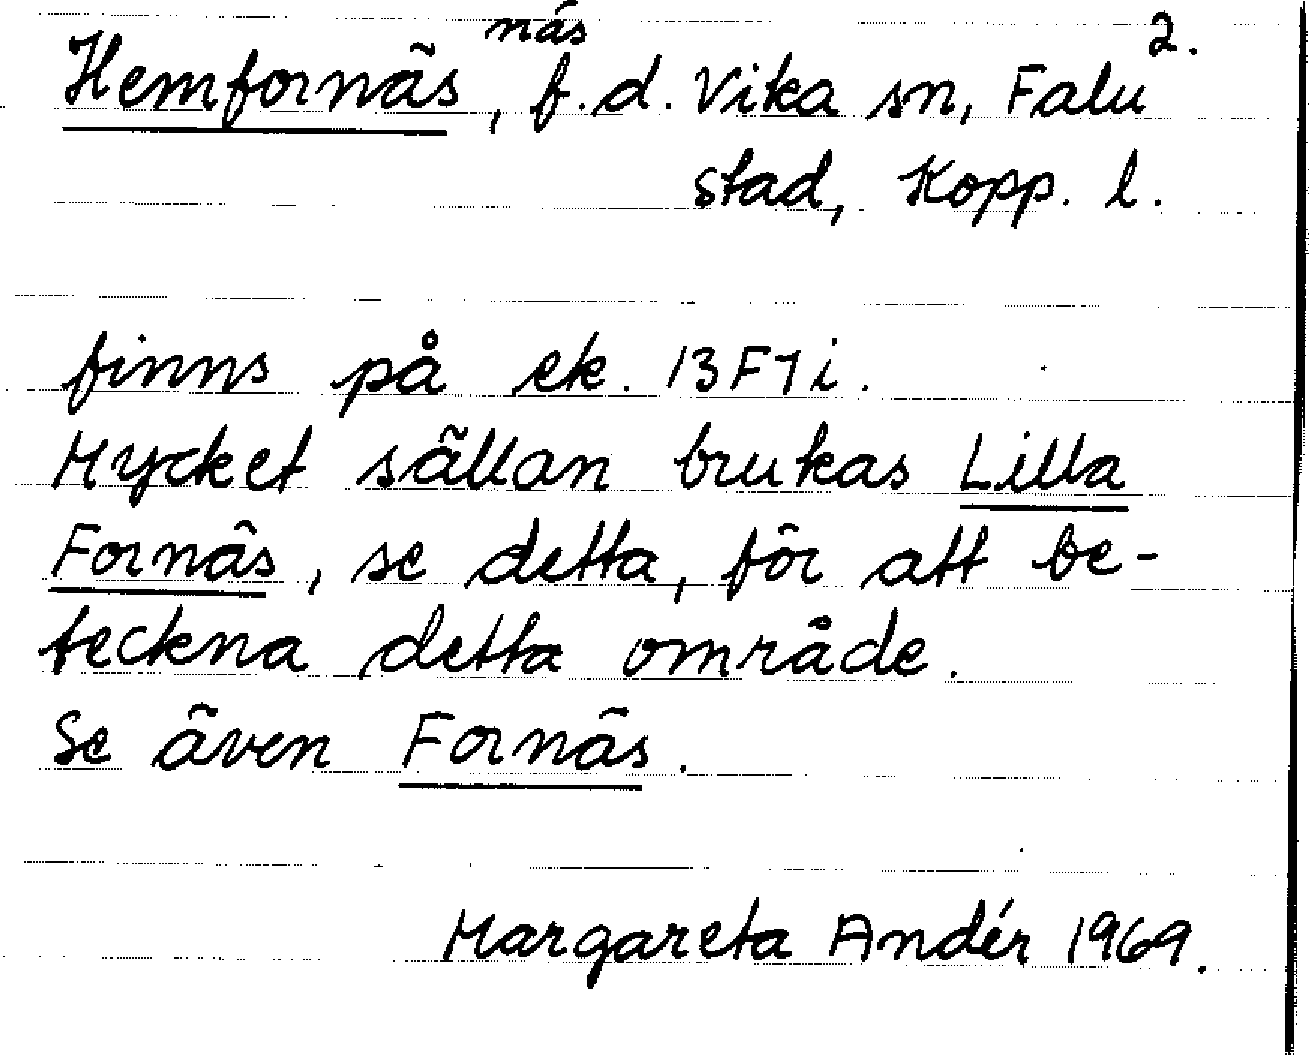 näs 2.
Hemfornäs, f.d. Vika sn, Falu
stad, Kopp. l.
finns på ek. 13F7i.
Mycket sällan brukas Lilla
Fornäs, se detta, för att be-
teckna detta område.
Se även Fornäs.
Margareta Andér 1969.